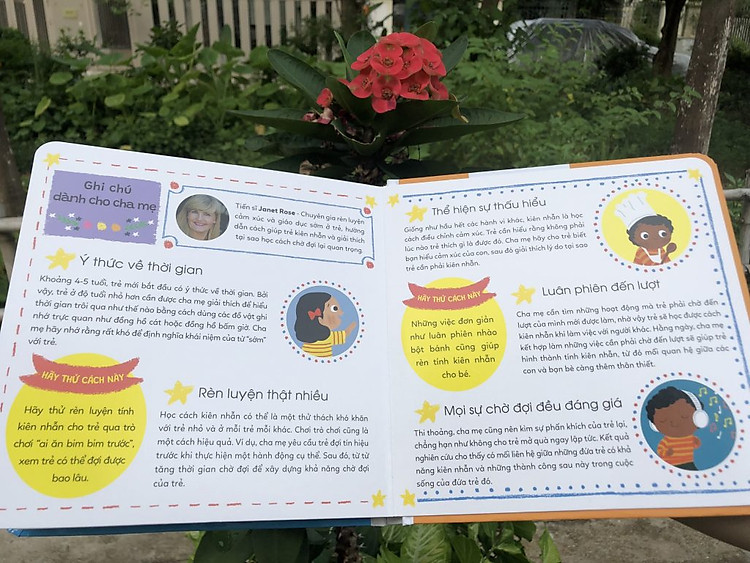 Ghi chú
dành cho cha mẹ
Tiến sĩ Janet Rose - Chuyên gia rèn luyện
cảm xúc và giáo dục sớm ở trẻ, hướng
dẫn cách giúp trẻ kiên nhẫn và giải thích
tại sao học cách chờ đợi lại quan trọng.
Ý thức về thời gian
Khoảng 4-5 tuổi, trẻ mới bắt đầu có ý thức về thời gian. Bởi
vậy, trẻ ở độ tuổi nhỏ hơn cần được cha mẹ giải thích để hiểu
thời gian trôi qua như thế nào bằng cách dùng các đồ vật ghi
nhớ trực quan như đồng hồ cát hoặc đồng hồ bấm giờ. Cha
mẹ hãy nhớ rằng rất khó để định nghĩa khái niệm của từ "sớm"
với trẻ.
HÃY THỬ CÁCH NÀY
Hãy thử rèn luyện tính
kiên nhẫn cho trẻ qua trò
chơi "ai ăn bim bim trước",
xem trẻ có thể đợi được
bao lâu.
Rèn luyện thật nhiều
Học cách kiên nhẫn có thể là một thử thách khó khăn
với trẻ nhỏ và ở mỗi trẻ mỗi khác. Chơi trò chơi cũng là
một cách hiệu quả. Ví dụ, cha mẹ yêu cầu trẻ đợi tín hiệu
trước khi thực hiện một hành động cụ thể. Sau đó, từ từ
tăng thời gian chờ đợi để xây dựng khả năng chờ đợi
của trẻ.
Thể hiện sự thấu hiểu
Giống như hầu hết các hành vi khác, kiên nhẫn là học
cách điều chỉnh cảm xúc. Trẻ cần hiểu rằng không phải
lúc nào trẻ thích gì là được đó. Cha mẹ hãy cho trẻ biết
bạn hiểu cảm xúc của con, sau đó giải thích lý do tại sao
trẻ cần phải kiên nhẫn.
HÃY THỬ CÁCH NÀY
Những việc đơn giản
như luân phiên nhào
bột bánh cũng giúp
rèn tính kiên nhẫn
cho bé.
Luân phiên đến lượt
Cha mẹ cần tìm những hoạt động mà trẻ phải chờ đến
lượt của mình mới được làm, nhờ vậy trẻ sẽ học được cách
kiên nhẫn khi làm việc với người khác. Hằng ngày, cha mẹ
kết hợp làm những việc cần phải chờ đến lượt sẽ giúp trẻ
hình thành tính kiên nhẫn, từ đó mối quan hệ giữa các
con và bạn bè càng thêm thân thiết.
Mọi sự chờ đợi đều đáng giá
Thi thoảng, cha mẹ cũng nên kìm sự phấn khích của trẻ lại,
chẳng hạn như không cho trẻ mở quà ngay lập tức. Kết quả
nghiên cứu cho thấy có mối liên hệ giữa những đứa trẻ có khả
năng kiên nhẫn và những thành công sau này trong cuộc
sống của đứa trẻ đó.